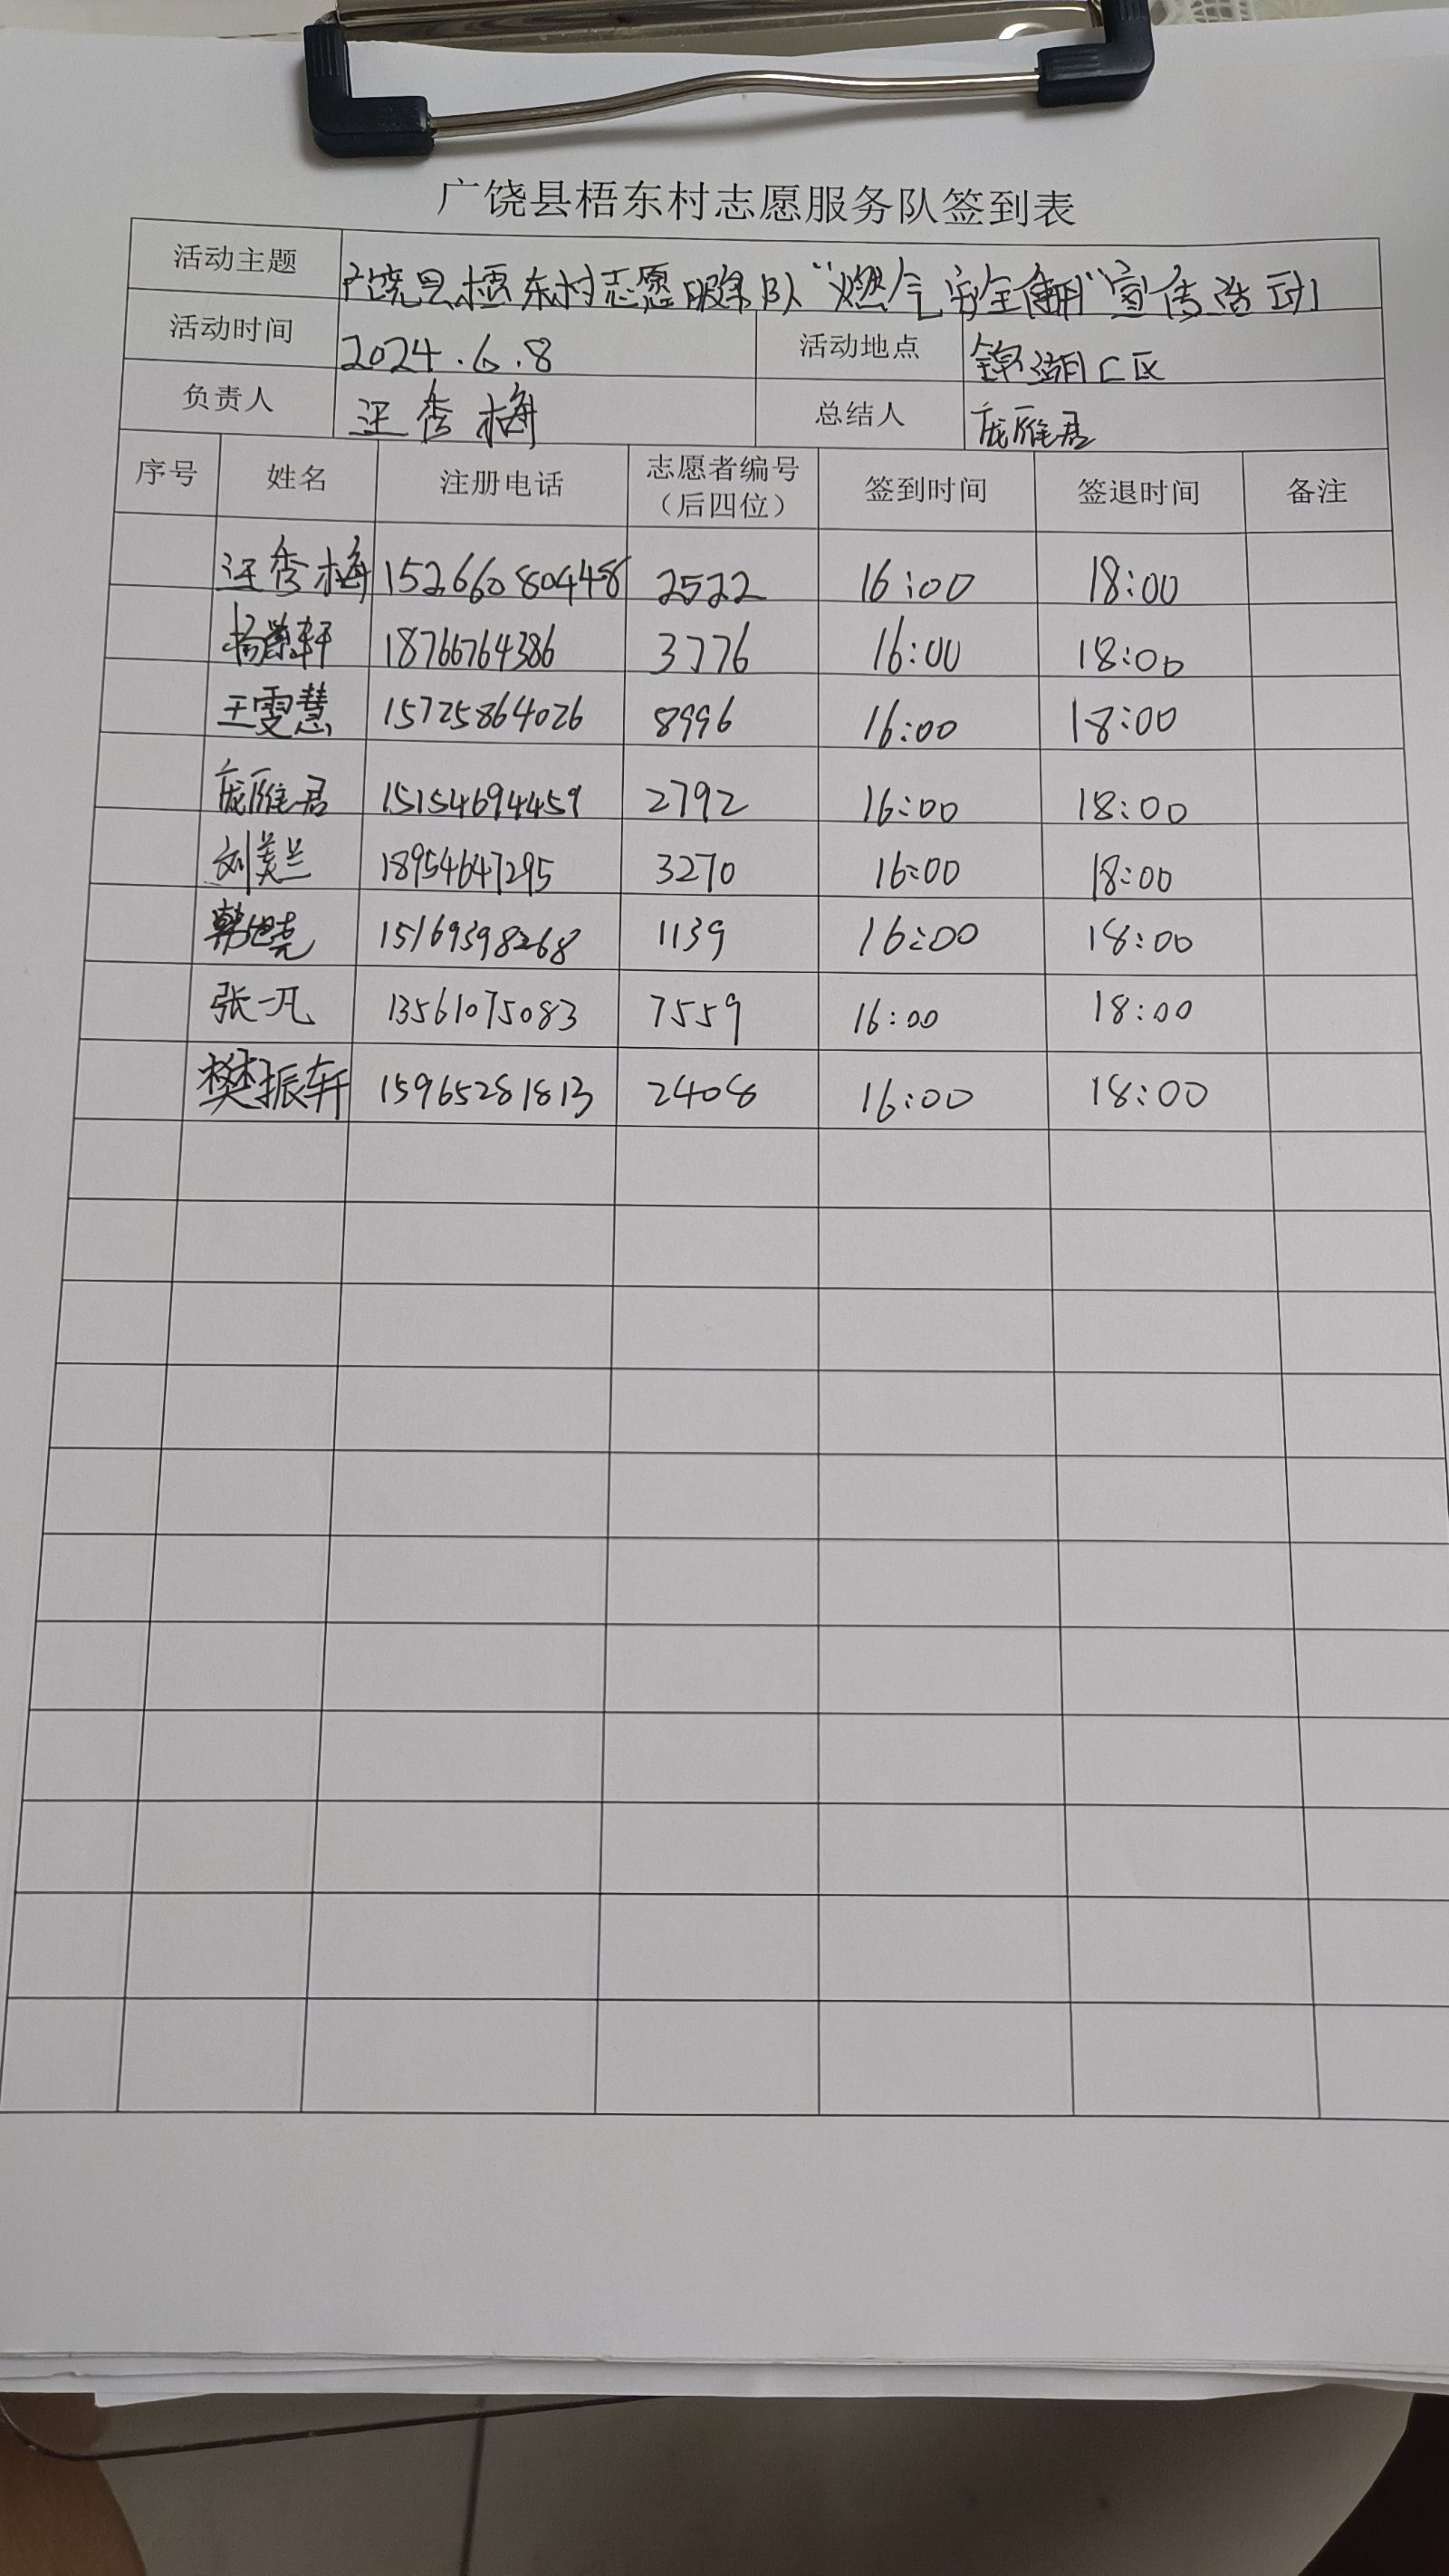 广饶县梧东村志愿服务队签到表
活动主题 广饶县梧东村志愿服务队“燃气安全使用”宣传活动
活动时间 2024.6.8 活动地点 锦湖C区
负责人 汪秀梅 总结人 庞雁君
序号 姓名 注册电话 志愿者编号（后四位） 签到时间 签退时间 备注
汪秀梅 15266080448 2522 16:00 18:00
18766764386 3776 16:00 18:00
王雯慧 15725864026 8996 16:00 18:00
庞雁君 15154694459 2792 16:00 18:00
刘美兰 18954647295 3270 16:00 18:00
15169398268 1139 16:00 18:00
张一凡 13561075083 7559 16:00 18:00
樊振轩 15965281813 2408 16:00 18:00